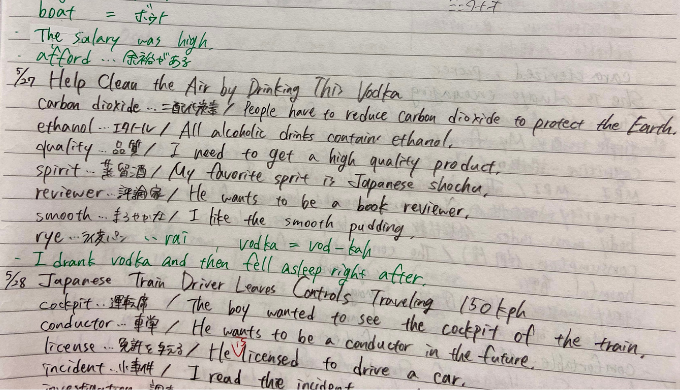 boat = ボット
- The salary was high.
- afford ... 余裕がある
5/27 Help Clean the Air by Drinking This Vodka
carbon dioxide ... 二酸化炭素 / People have to reduce carbon dioxide to protect the Earth.
ethanol ... エタノール / All alcoholic drinks contains ethanol.
quality ... 品質 / I need to get a high quality product.
spirit ... 蒸留酒 / My favorite sprit is Japanese shochu.
reviewer ... 評論家 / He wants to be a book reviewer.
smooth ... まろやかな / I like the smooth pudding.
rye ... ライ麦パン ... rai , vodka = vod-kah
- I drank vodka and then fell asleep right after.
5/28 Japanese Train Driver Leaves Controls Traveling 150 kph
cockpit ... 運転席 / The boy wanted to see the cockpit of the train.
conductor ... 車掌 / He wants to be a conductor in the future.
license ... 免許を与える / He is licensed to drive a car.
incident ... 小事件 / I read the incident